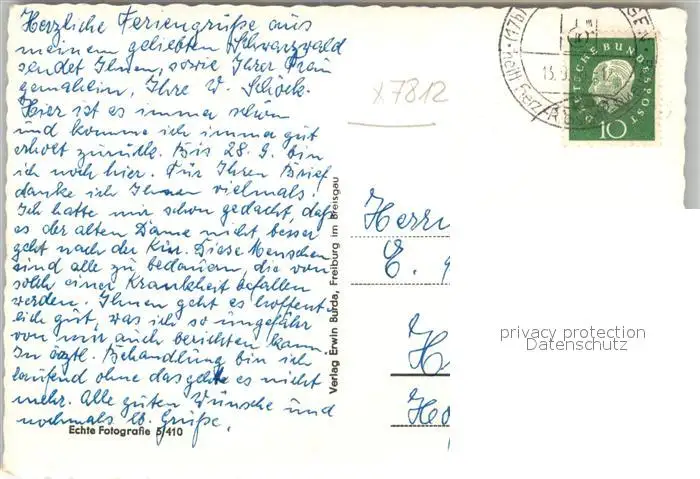 Herzliche Feriengrüße aus
meinem geliebten Schwarzwald
sendet Ihnen, sowie Ihrer Frau
gemahlin, Ihre W. Schock.
Hier ist es immer schön
und komme ich immer gut
erholt zurück. Bis 28. 9. bin
ich noch hier. Für Ihren Brief
danke ich Ihnen vielmals!
Ich hatte mir schon gedacht, daß
es der alten Dame nicht besser
geht nach der Kur. Diese Menschen
sind alle zu bedauern, die von
solch einer Krankheit befallen
werden. Ihnen geht es hoffent
lich gut, was ich so ungefähr
von mir auch berichten kann.
In ärztl. Behandlung bin ich
laufend ohne das geht es nicht
mehr. Alle guten Wünsche und
nochmals lb. Grüße.
Echte Fotografie 5/410
Verlag Erwin Burda, Freiburg im Breisgau
x 7812
(17b)
GEN
DEUTSCHE BUNDESPOST
10
Herrn
E.
H
privacy protection
Datenschutz